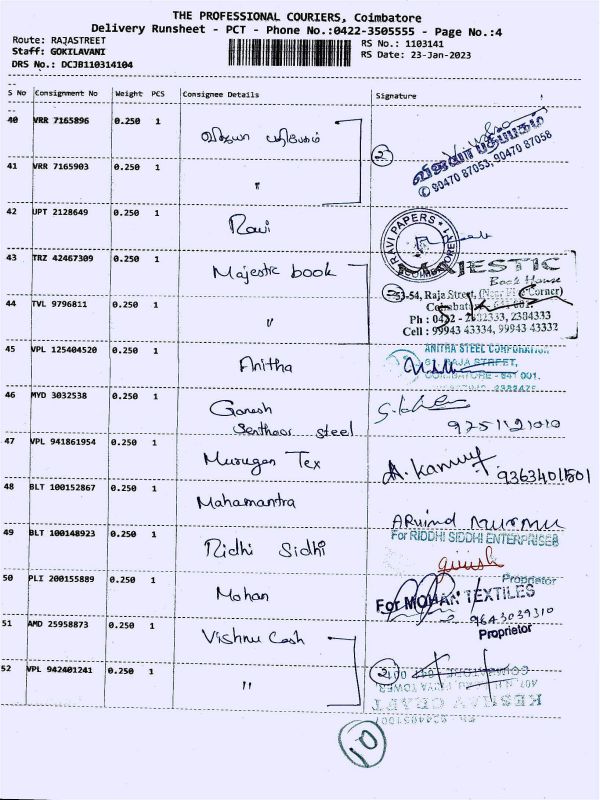 THE PROFESSIONAL COURIERS, Coimbatore
Delivery Runsheet - PCT - Phone No.:0422-3505555 - Page No.:4
Route: RAJASTREET
Staff: GOKILAVANI
DRS No.: DCJB110314104
RS No.: 1103141
RS Date: 23-Jan-2023
S No Consignment No Weight PCS Consignee Details Signature
40 VRR 7165896 0.250 1
விஜயா பதிப்பகம்
2
விஜயா பதிப்பகம்
✆ 90470 87053, 90470 87058
41 VRR 7165903 0.250 1 "
42 UPT 2128649 0.250 1 Ravi
RAVI PAPERS
43 TRZ 42467309 0.250 1 Majestic book
MAJESTIC
Book House
2
53-54, Raja Street,
44 TVL 9796811 0.250 1 "
Ph : 0422 - 2382333, 2384333
Cell : 99943 43334, 99943 43332
45 VPL 125404520 0.250 1 Anitha
ANITHA STEEL CORPORATION
RAJA STREET,
COIMBATORE - 641 001.
46 MYD 3032538 0.250 1 Ganesh
Senthoor steel
9251121010
47 VPL 941861954 0.250 1 Murugan Tex
48 BLT 100152867 0.250 1 Mahamantra
49 BLT 100148923 0.250 1 Ridhi Sidhi
For RIDDHI SIDDHI ENTERPRISES
Proprietor
50 PLI 200155889 0.250 1 Mohan
For MOHAN TEXTILES
9643039310
Proprietor
51 AMD 25958873 0.250 1 Vishnu Cash
52 VPL 942401241 0.250 1 "
2
KESHAV CRAFT
10